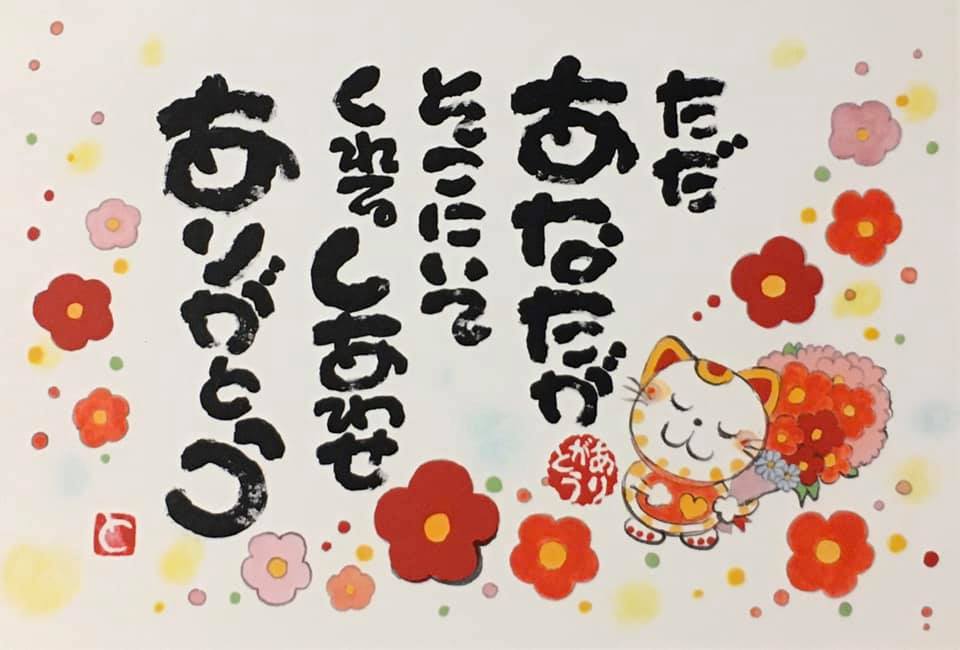 ただ
あなたが
そこにいて
くれるしあわせ
ありがとう
ありがとう